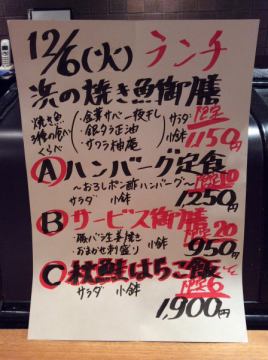 12/6(火) ランチ
浜の焼き魚御膳
焼き魚 3種の食べくらべ
・金華サバ一夜干し
・銀ダラ正油
・サワラ神庵
サラダ 小鉢
限定
1,150円
Ⓐハンバーグ定食
～おろしポン酢ハンバーグ～ 限定10
サラダ 小鉢 1250円
Ⓑサービス御膳
限定20
・豚バラ生姜焼き 小鉢 950円
・おまかせ刺盛り
Ⓒ秋鮭はらこ飯
サラダ 小鉢 限定6
1,900円